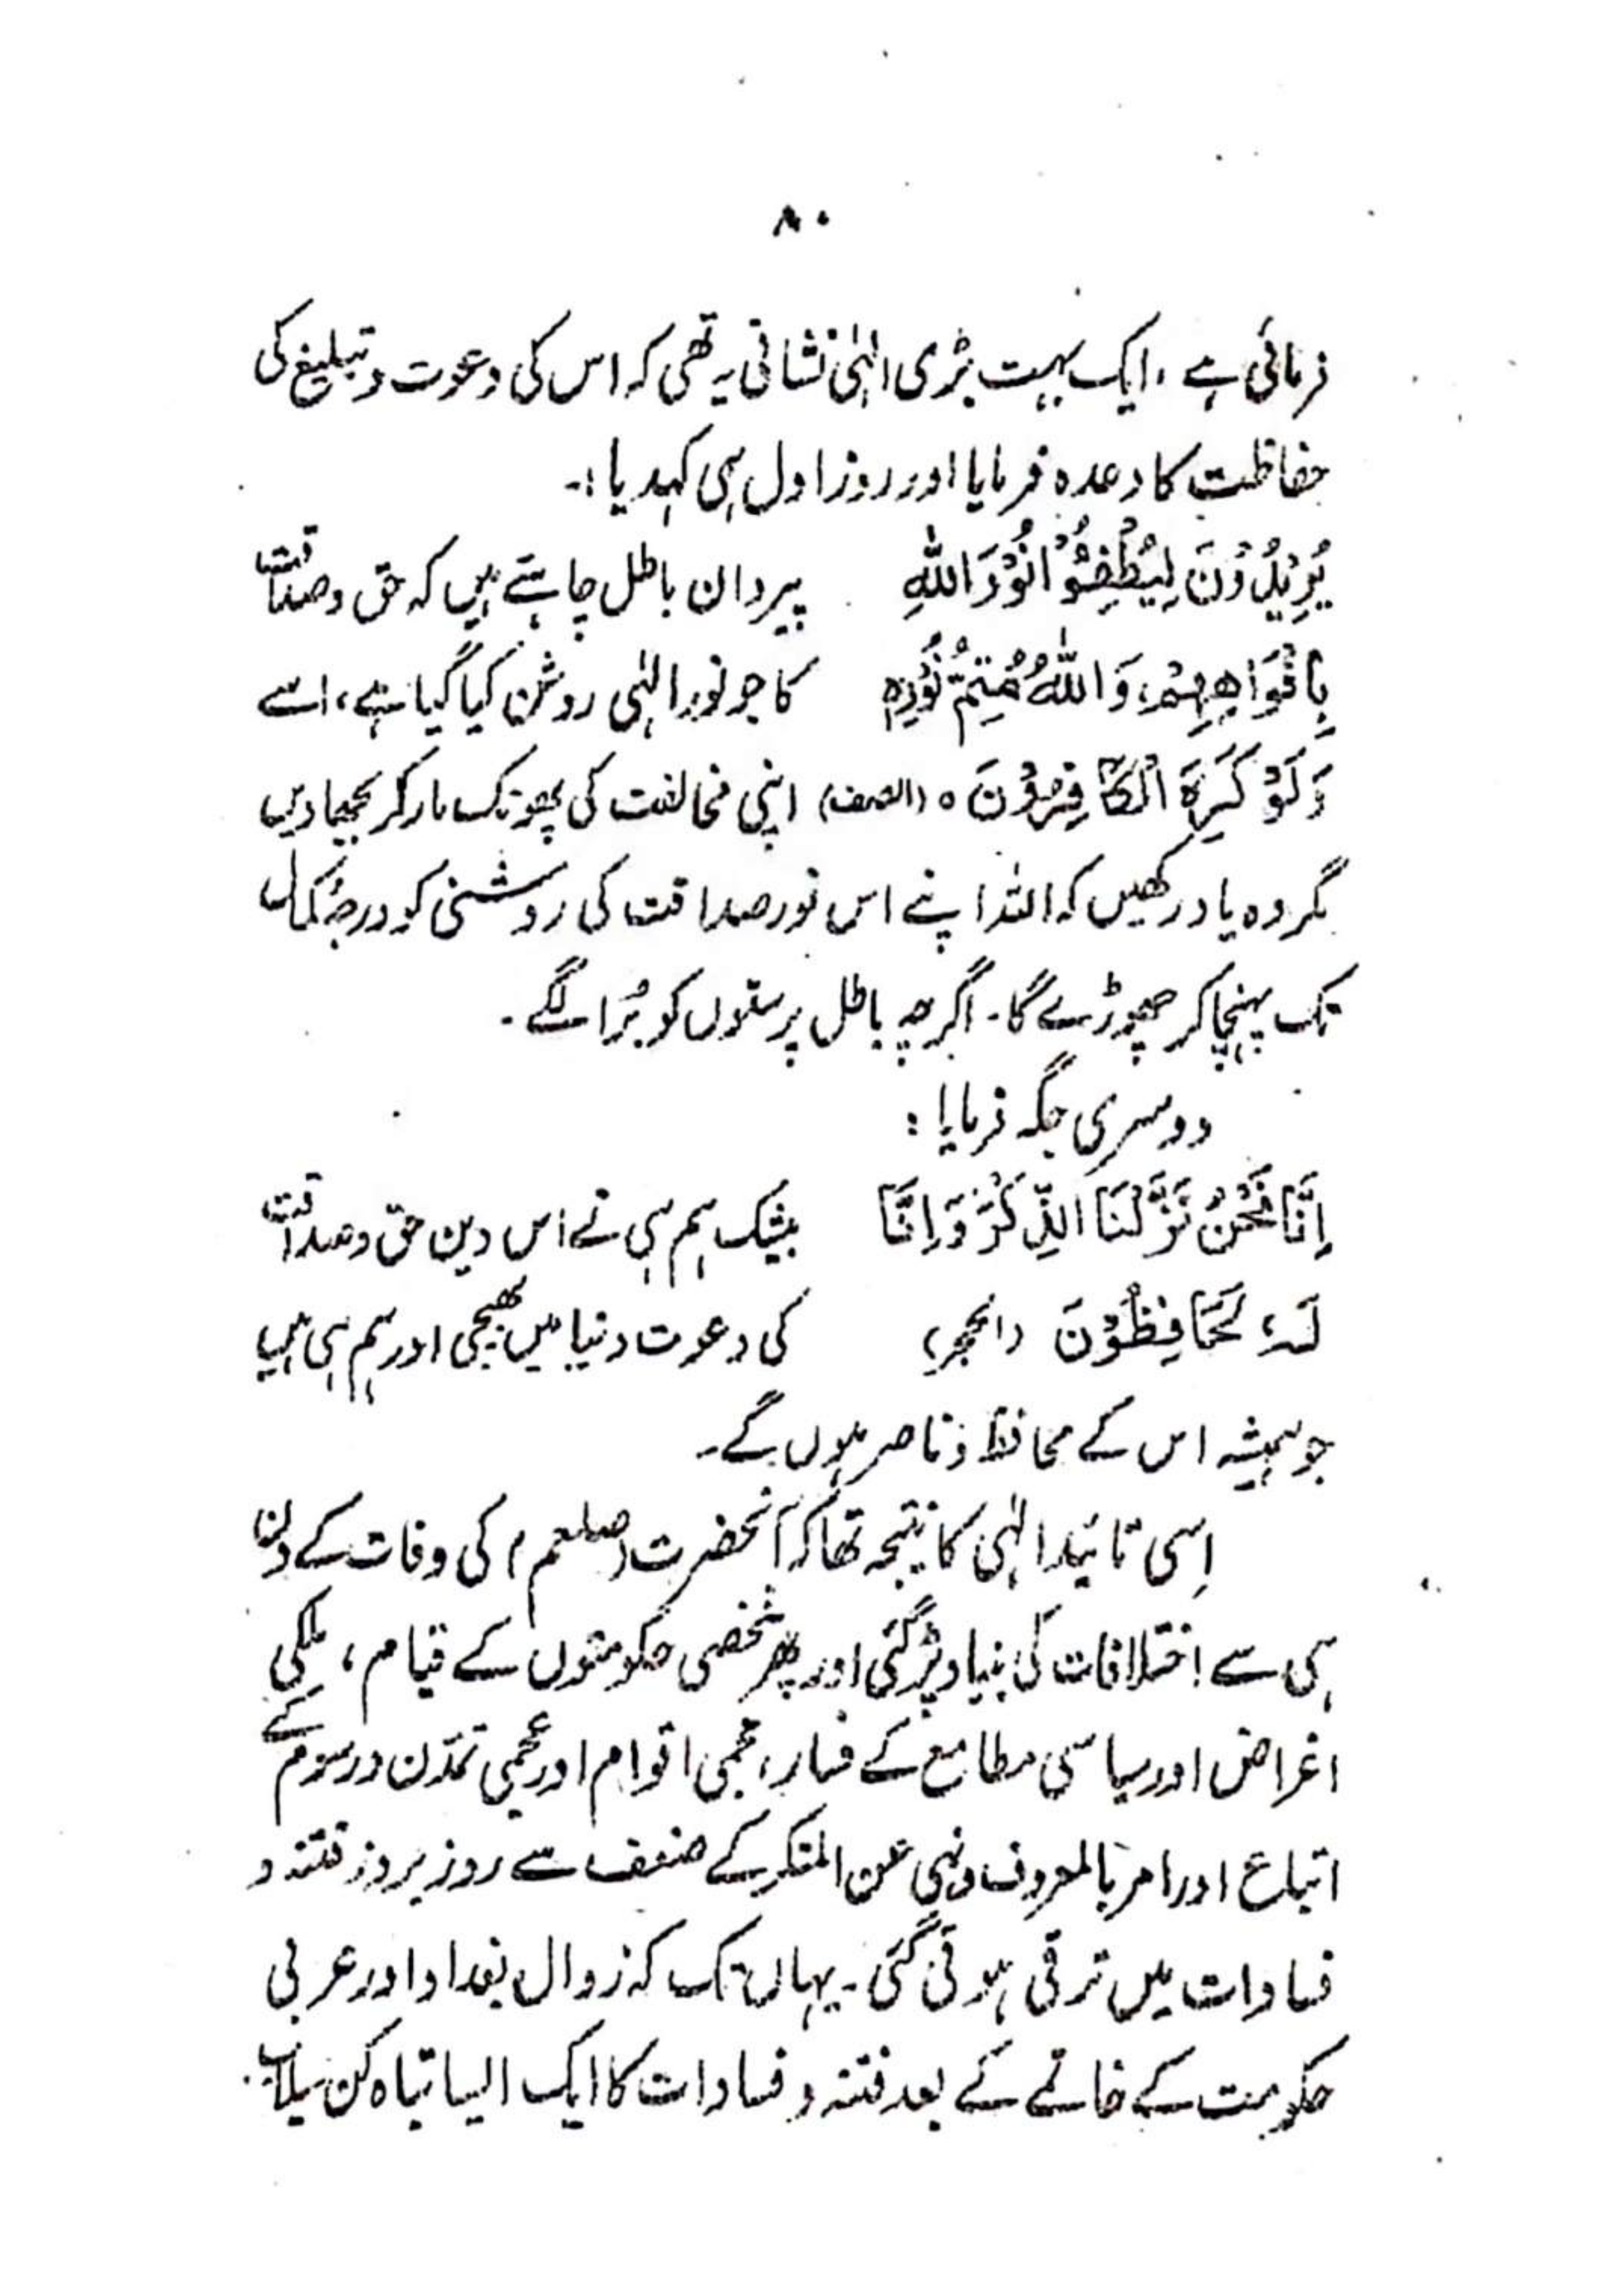 ۸۰
فرمائی ہے، ایک بہت بڑی الٰہی نشانی یہ تھی کہ اس کی دعوت و تبلیغ کی
حفاظت کا وعدہ فرمایا اور روز اول ہی کہدیا :۔
يُرِيْدُوْنَ لِيُطْفِئُوْا نُوْرَ اللّٰهِ پیروان باطل چاہتے ہیں کہ حق و صداقت
بِاَفْوَاهِهِمْ، وَاللّٰهُ مُتِمُّ نُوْرِهٖ کا جو نور الٰہی روشن کیا گیا ہے، اسے
وَلَوْ كَرِهَ الْكَافِرُوْنَ ہ (الصف) اپنی مخالفت کی پھونک مار کر بجھا دیں
مگر وہ یاد رکھیں کہ اللہ اپنے اس نور صداقت کی روشنی کو درجۂ کمال
تک پہنچا کر چھوڑے گا۔ اگرچہ باطل پرستوں کو بُرا لگے۔
دوسری جگہ فرمایا :
اِنَّا نَحْنُ نَزَّلْنَا الذِّكْرَ وَاِنَّا بیشک ہم ہی نے اس دین حق و صداقت
لَهٗ لَحَافِظُوْنَ (الحجر) کی دعوت دنیا میں بھیجی اور ہم ہی ہیں
جو ہمیشہ اس کے محافظ و ناصر ہوں گے۔
اِسی تائید الٰہی کا نتیجہ تھا کہ آنحضرت (صلعم) کی وفات کے دن
ہی سے اختلافات کی بنیاد پڑ گئی اور پھر شخصی حکومتوں کے قیام، ملکی
اغراض اور سیاسی مطامع کے فساد، عجمی اقوام اور عجمی تمدّن و رسوم کے
اتباع اور امر بالمعروف و نہی عن المنکر کے ضعف سے روز بروز فتنہ و
فسادات میں ترقی ہوتی گئی۔ یہاں تک کہ زوال بغداد اور عربی
حکومت کے خاتمے کے بعد فتنہ و فسادات کا ایک ایسا تباہ کن سیلاب